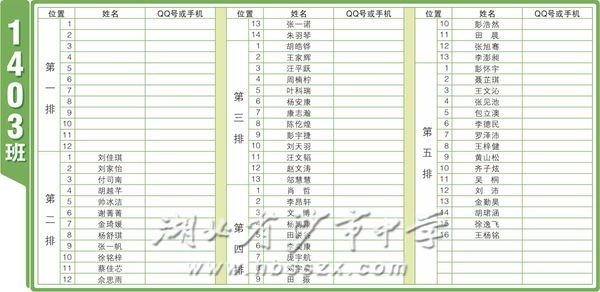 1403班
位置 姓名 QQ号或手机
第一排
1
2
3
4
5
6
7
8
9
10
11
12
第二排
1 刘佳琪
2 刘家怡
3 付司南
4 胡越芊
5 帅冰洁
6 谢菁菁
7 金琦媛
8 杨舒琪
9 张一帆
10 徐铭梓
11 蔡佳芯
12 余思雨
位置 姓名 QQ号或手机
13 张一诺
14 朱羽琴
第三排
1 胡皓铧
2 王家辉
3 汪平跃
4 周楠柠
5 叶科瑞
6 杨安康
7 康志瀚
8 陈仡煌
9 彭宇捷
10 刘天羽
11 汪文韬
12 赵文涛
13 邬慧慧
第四排
1 肖哲
2 李昂轩
3 文博
4
5
6
7 庞宇航
8
9 田振
位置 姓名 QQ号或手机
10 彭浩然
11 田晨
12 张旭骞
13 李澎昶
第五排
1 彭怀宇
2 聂芷琪
3 王文沁
4 张见池
5 包立澳
6 李德民
7 罗泽沛
8 王梓健
9 黄山松
10 齐子炫
11 吴桐
12 刘沛
13 金勤昊
14 胡珺涵
15 徐逸飞
16 王杨铭
湖北省沙市中学
www.hbsszx.com